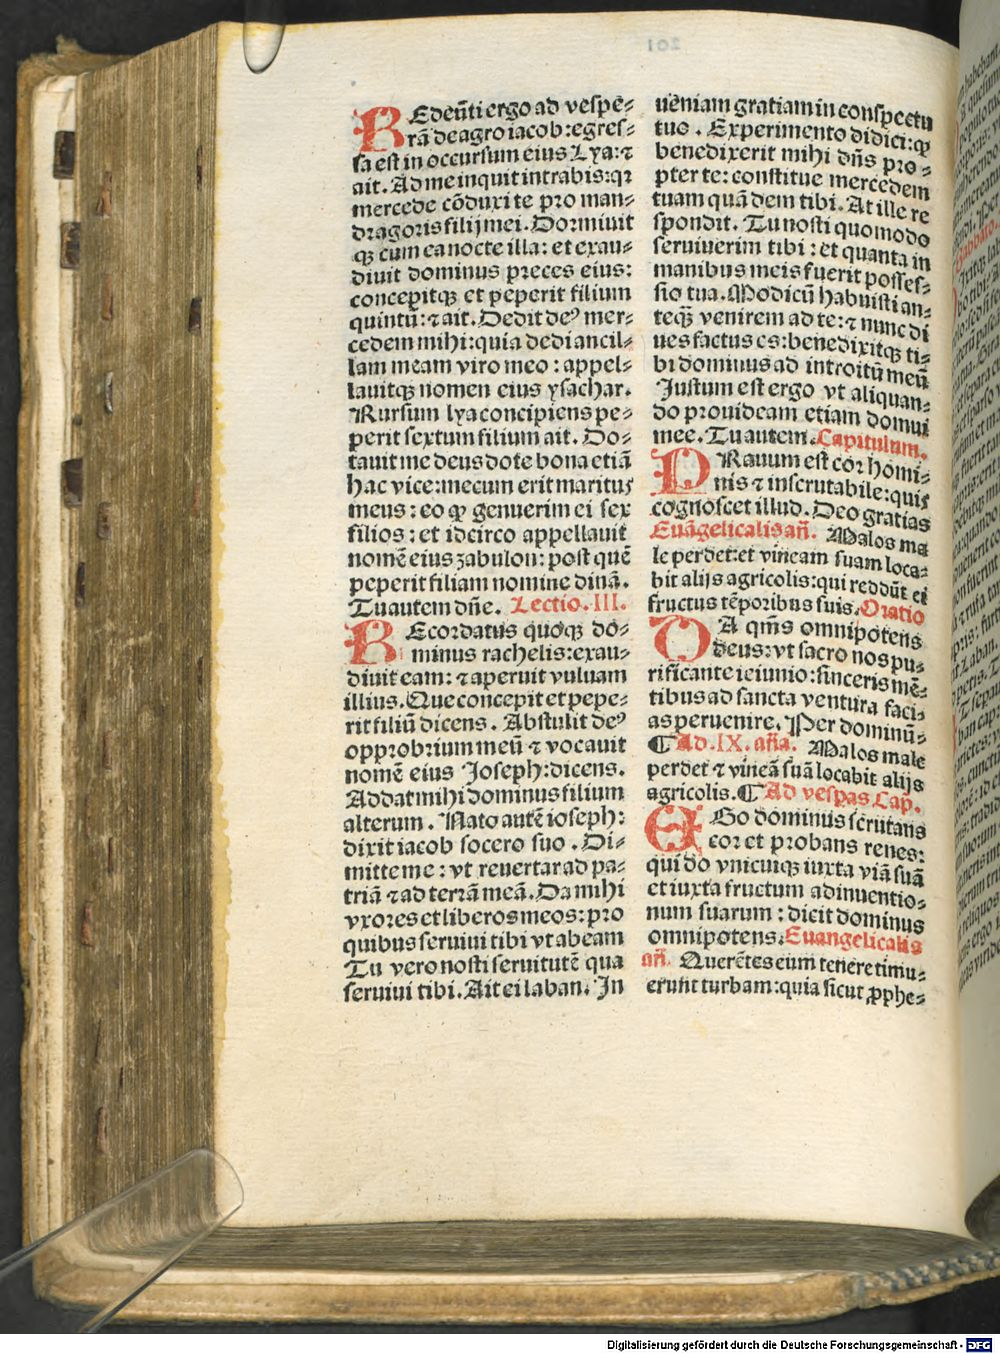 REdeũti ergo ad vespe⸗
rã de agro iacob:egres⸗
sa est in occursum eius Lya:⁊
ait. Ad me inquit intrabis:qꝛ
mercede cõduxi te pro man⸗
dragoris filij mei. Dormiuit
qꝫ cum ea nocte illa: et exau⸗
diuit dominus preces eius:
concepitqꝫ et peperit filium
quintũ:⁊ ait. Dedit deꝰ mer⸗
cedem mihi:quia dedi ancil⸗
lam meam viro meo: appel⸗
lauitqꝫ nomen eius ysachar.
Rursum lya concipiens pe⸗
perit sextum filium ait. Do⸗
tauit me deus dote bona etiã
hac vice:mecum erit maritus
meus: eo ꝙ genuerim ei sex
filios: et idcirco appellauit
nomẽ eius zabulon: post quẽ
peperit filiam nomine dinã.
Tu autem dñe. Lectio. III.
REcordatus quoqꝫ do⸗
minus rachelis:exau⸗
diuit eam: ⁊ aperuit vuluam
illius. Que concepit et pepe⸗
rit filiũ dicens. Abstulit deꝰ
opprobrium meũ ⁊ vocauit
nomẽ eius Joseph:dicens.
Addat mihi dominus filium
alterum. Nato autẽ ioseph:
dixit iacob socero suo. Di⸗
mitte me: vt reuertar ad pa⸗
triã ⁊ ad terrã meã. Da mihi
vxores et liberos meos: pro
quibus seruiui tibi vt abeam
Tu vero nosti seruitutẽ qua
seruiui tibi. Ait ei laban. In
ueniam gratiam in conspectu
tuo. Experimento didici:ꝙ
benedixerit mihi dñs pro⸗
pter te: constitue mercedem
tuam quã dem tibi. At ille re
spondit. Tu nosti quomodo
seruiuerim tibi: et quanta in
manibus meis fuerit posses⸗
sio tua. Modicũ habuisti an⸗
teqꝫ venirem ad te:⁊ nunc di
ues factus es: benedixitqꝫ ti⸗
bi dominus ad introitũ meũ
Justum est ergo vt aliquan⸗
do prouideam etiam domui
mee. Tu autem. Capitulum.
PRauum est cor homi⸗
nis ⁊ inscrutabile: quis
cognoscet illud. Deo gratias
Euãgelicalis añ. Malos ma
le perdet:et vineam suam loca⸗
bit alijs agricolis:qui reddũt ei
fructus tẽporibus suis. Oratio
DA qm̃s omnipotens
deus: vt sacro nos pu⸗
rificante ieiunio: sinceris mẽ⸗
tibus ad sancta ventura faci⸗
as peruenire. Per dominũ⸗
¶ Ad. IX. aña. Malos male
perdet ⁊ vineã suã locabit alijs
agricolis. ¶ Ad vespas Cap.
EGo dominus scrutans
cor et probans renes:
qui do vnicuiqꝫ iuxta viã suã
et iuxta fructum adinuentio⸗
num suarum: dicit dominus
omnipotens. Euangelicalis
añ. Querẽtes eum tenere timu⸗
erunt turbam:quia sicut ꝓphe⸗
Digitalisierung gefördert durch die Deutsche Forschungsgemeinschaft - DFG